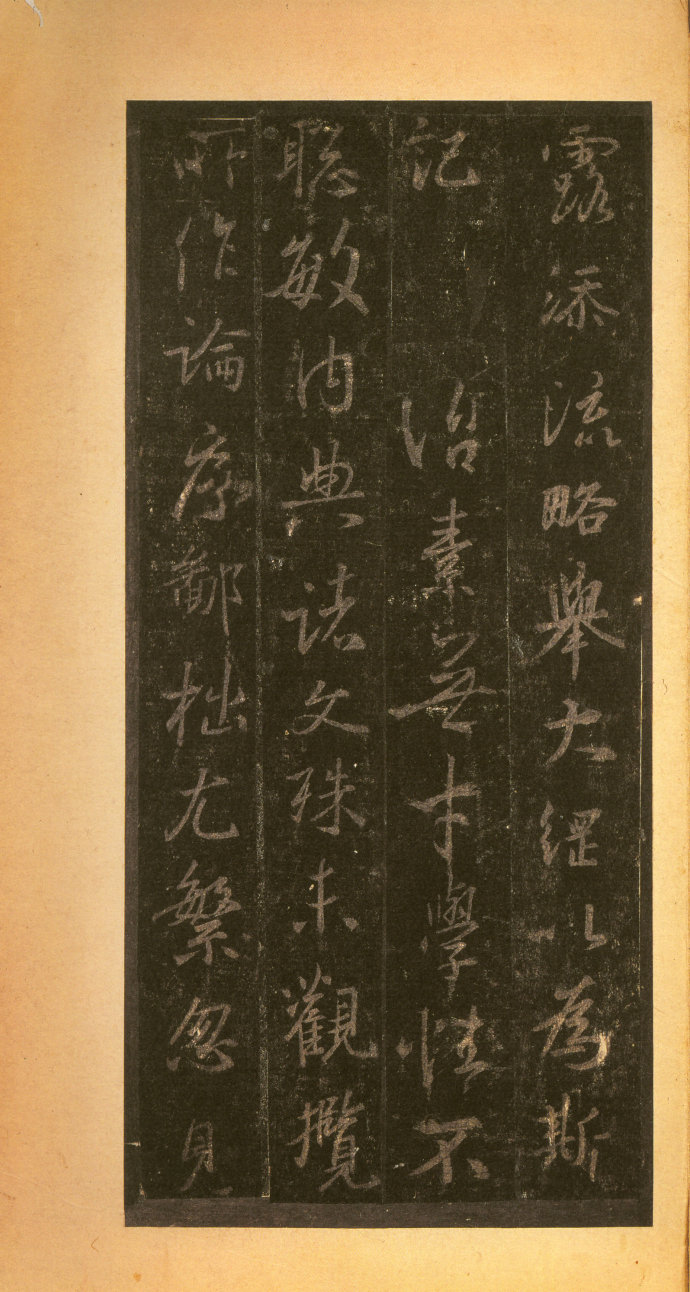 露添流略舉大綱以為斯
記 治素無才學性不
聰敏內典諸文殊未觀攬
所作論序鄙拙尤繁忽見